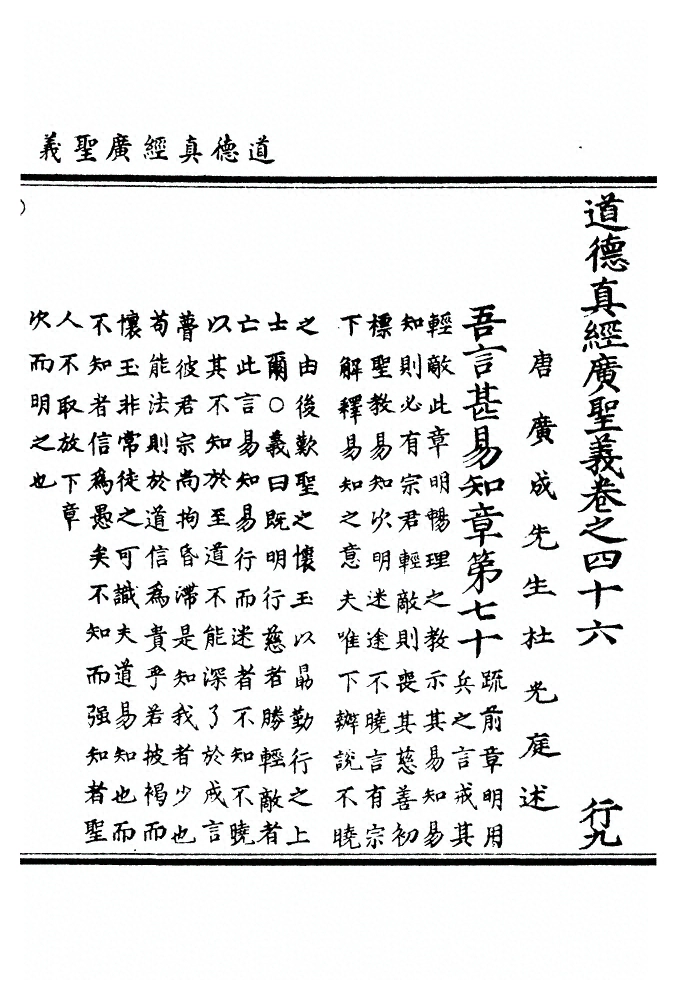 道德真經廣聖義
道德真經廣聖義卷之四十六 行九
唐廣成先生杜光庭述
吾言甚易知章第七十
疏前章明用
兵之言戒其
輕敵此章明暢理之教示其易知易
知則必有宗君輕敵則喪其慈善初
標聖教易知次明迷途不曉言有宗
下解釋易知之意夫唯下辨說不曉
之由後歎聖之懷玉以勗勤行之上
士爾○義曰既明行慈者勝輕敵者
亡此言易知易行而迷者不知不曉
以其不知於至道不能深了於成言
瞢彼君宗尚拘昏滯是知我者少也
苟能法則於道信為貴乎若披褐而
懷玉非常徒之可識夫道易知也而
不知者信為愚矣不知而强知者聖
人不取故下章
次而明之也